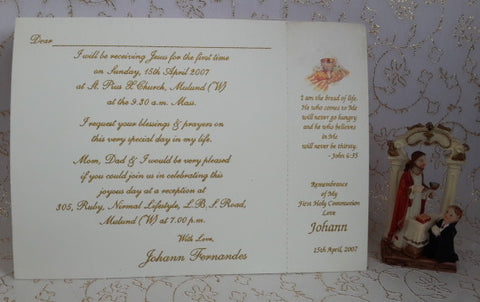 Dear
I will be receiving Jesus for the first time
on Sunday, 15th April 2007
at St. Pius X Church, Mulund (W)
at the 9.30 a.m. Mass.
I request your blessings & prayers on
this very special day in my life.
Mom, Dad & I would be very pleased
if you could join us in celebrating this
joyous day at a reception at
305, Ruby, Normal Lifestyle, L.B.S Road,
Mulund (W) at 7.00 p.m.
With Love,
Johann Fernandes
I am the bread of life.
He who comes to Me
will never go hungry
and he who believes
in Me
will never be thirsty.
- John 6:35
Remembrance
of My
First Holy Communion
Love
Johann
15th April, 2007